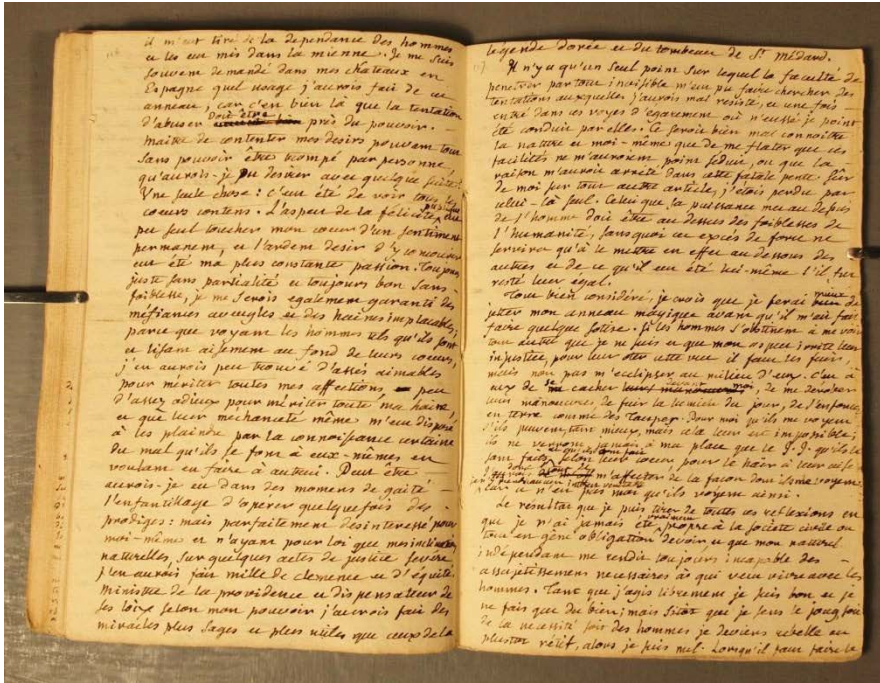 il m'eut tiré de la dependance des hommes
et les eut mis dans la mienne. Je me suis
souvent demandé dans mes chateaux en
Espagne quel usage j'aurois fait de cet
anneau; car c'est bien là que la tentation
d'abuser doit être près du pouvoir.
maitre de contenter mes desirs pouvant tout
sans pouvoir être trompé par personne
qu'aurois-je pu desirer avec quelque suite?
Une seule chose: c'eut été de voir tous les
coeurs contens. L'aspect de la félicité publique eut
pu seul toucher mon coeur d'un sentiment
permanent, et l'ardent desir d'y concourir
eut été ma plus constante passion. Toujours
juste sans partialité et toujours bon sans
foiblesse, je me serois egalement garanti des
méfiances aveugles et des haines implacables;
parce que voyant les hommes tels qu'ils sont
et lisant aisément au fond de leurs coeurs,
j'en aurois peu trouvé d'assés aimables
pour mériter toutes mes affections, peu
d'assez odieux pour mériter toute ma haine,
et que leur mechanceté même m'eut disposé
à les plaindre par la connoissance certaine
du mal qu'ils se font à eux-mêmes en
voulant en faire à autrui. Peut être
aurois-je eu dans des momens de gaité
l'enfantillage d'opérer quelquefois des
prodiges: mais parfaitement desinteressé pour
moi-même et n'ayant pour loi que mes inclinations
naturelles, sur quelques actes de justice sevére,
j'en aurois fait mille de clemence et d'équité.
Ministre de la providence et dispensateur de
ses loix selon mon pouvoir j'aurois fait des
miracles plus sages et plus utiles que ceux de la
legende dorée et du tombeau de St. Médard.
Il n'y a qu'un seul point sur lequel la faculté de
penetrer partout invisible m'eut pu faire chercher des
tentations auxquelles j'aurois mal resisté, et une fois
entré dans ces voyes d'egarement où n'eussé je point
été conduit par elles. Ce seroit bien mal connoitre
la nature et moi-même que de me flater que ces
facilités ne m'auroient point seduit, ou que la
raison m'auroit arrêté dans cette fatale pente. Sûr
de moi sur tout autre article, j'étois perdu par
celui-là seul. Celui que sa puissance met au dessus
de l'homme doit être au dessus des foiblesses de
l'humanité, sans quoi cet excés de force ne
servira qu'à le mettre en effet au dessous des
autres et de ce qu'il eut été lui-même s'il fut
resté leur egal.
Tout bien considéré, je crois que je ferai mieux de
jetter mon anneau magique avant qu'il m'ait fait
faire quelque sotise. Si les hommes s'obstinent à me voir
tout autre que je ne suis et que mon aspect irrite leur
injustice, pour leur oter cette vue il faut les fuir,
mais non pas m'eclipser au milieu d'eux. C'est à
eux de se cacher devant moi, de me derober
leurs manoeuvres, de fuir la lumiere du jour, de s'enfoncer
en terre comme des taupes. Pour moi qu'ils me voyent
s'ils peuvent, tant mieux, mais cela leur est impossible;
ils ne verront jamais à ma place que le J.J. qu'ils se
sont faits et qu'ils ont fait selon leur coeur, pour le haïr à leur aise.
J'aurois donc tort de m'affecter de la façon dont ils me voyent:
je n'y dois prendre aucun interest veritable
car ce n'est pas moi qu'ils voyent ainsi.
Le resultat que je puis tirer de toutes ces reflexions est
que je n'ai jamais été vraiment propre à la societé civile où
tout est gêne obligation devoir et que mon naturel
indépendant me rendit toujours incapable des
assujetissemens necessaires à qui veut vivre avec les
hommes. Tant que j'agis librement je suis bon et je
ne fais que du bien; mais sitot que je sens le joug, soit
de la necessité soit des hommes je deviens rebelle ou
plustot rétif, alors je suis nul. Lorsqu'il faut faire le